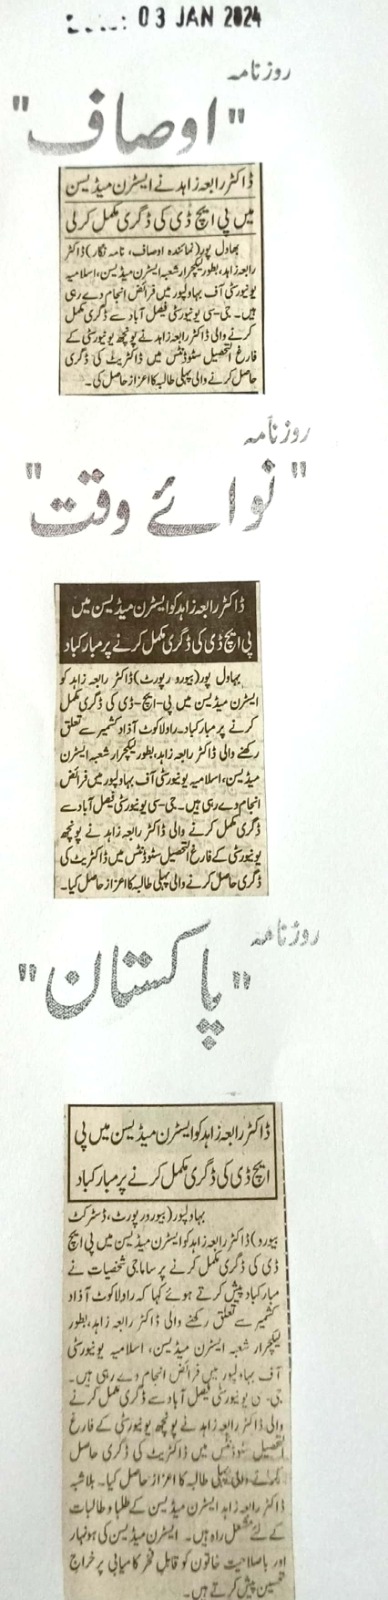 03 JAN 2024
روزنامہ
"اوصاف"
ڈاکٹر رابعہ زاہد نے ایسٹرن میڈیسن
میں پی ایچ ڈی کی ڈگری مکمل کرلی
بھاول پور (نمائندہ اوصاف، نامہ نگار) ڈاکٹر
رابعہ زاہد، بطور لیکچرار شعبہ ایسٹرن میڈیسن، اسلامیہ
یونیورسٹی آف بہاولپور میں فرائض انجام دے رہی
ہیں۔ جی سی یونیورسٹی فیصل آباد سے ڈگری مکمل
کرنے والی ڈاکٹر رابعہ زاہد نے پونچھ یونیورسٹی کے
فارغ التحصیل سٹوڈنٹس میں ڈاکٹریٹ کی ڈگری
حاصل کرنے والی پہلی طالبہ کا اعزاز حاصل کی۔
روزنامہ
"نوائے وقت"
ڈاکٹر رابعہ زاہد کو ایسٹرن میڈیسن میں
پی ایچ ڈی کی ڈگری مکمل کرنے پر مبارکباد
بہاول پور (بیورو رپورٹ) ڈاکٹر رابعہ زاہد کو
ایسٹرن میڈیسن میں پی-ایچ-ڈی کی ڈگری مکمل
کرنے پر مبارکباد۔ راولاکوٹ آزاد کشمیر سے تعلق
رکھنے والی ڈاکٹر رابعہ زاہد، بطور لیکچرار شعبہ ایسٹرن
میڈیسن، اسلامیہ یونیورسٹی آف بہاولپور میں فرائض
انجام دے رہی ہیں۔ جی سی یونیورسٹی فیصل آباد سے
ڈگری مکمل کرنے والی ڈاکٹر رابعہ زاہد نے پونچھ
یونیورسٹی کے فارغ التحصیل سٹوڈنٹس میں ڈاکٹریٹ کی
ڈگری حاصل کرنے والی پہلی طالبہ کا اعزاز حاصل کیا۔
روزنامہ
"پاکستان"
ڈاکٹر رابعہ زاہد کو ایسٹرن میڈیسن میں پی
ایچ ڈی کی ڈگری مکمل کرنے پر مبارکباد
بہاولپور (بیورو رپورٹ، ڈسٹرکٹ
بیورو) ڈاکٹر رابعہ زاہد کو ایسٹرن میڈیسن میں پی ایچ
ڈی کی ڈگری مکمل کرنے پر سماجی شخصیات نے
مبارکباد پیش کرتے ہوئے کہا کہ راولاکوٹ آزاد
کشمیر سے تعلق رکھنے والی ڈاکٹر رابعہ زاہد، بطور
لیکچرار شعبہ ایسٹرن میڈیسن، اسلامیہ یونیورسٹی
آف بہاولپور میں فرائض انجام دے رہی ہیں۔
جی سی یونیورسٹی فیصل آباد سے ڈگری مکمل کرنے
والی ڈاکٹر رابعہ زاہد نے پونچھ یونیورسٹی کے فارغ
التحصیل سٹوڈنٹس میں ڈاکٹریٹ کی ڈگری حاصل
کرنے والی پہلی طالبہ کا اعزاز حاصل کیا۔ بلاشبہ
ڈاکٹر رابعہ زاہد ایسٹرن میڈیسن کے طلبا و طالبات
کے لئے مشعل راہ ہیں۔ ایسٹرن میڈیسن کی ہونہار
اور باصلاحیت خاتون کو قابل فخر کامیابی پر خراج
تحسین پیش کرتے ہیں۔